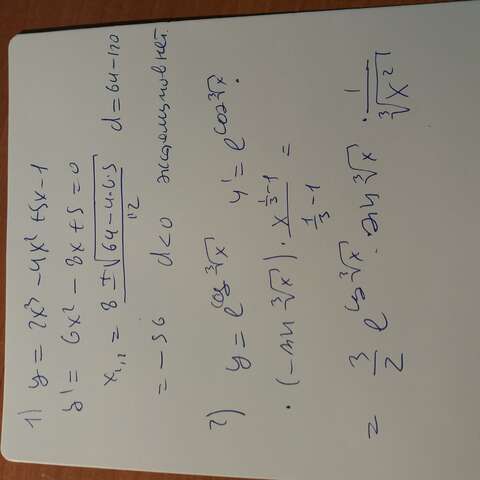 1) y = 2x³ - 4x² + 5x - 1
y' = 6x² - 8x + 5 = 0
x₁,₂ = (8 ± √(64 - 4·6·5))/12 d = 64 - 120
= -56 d < 0 экстремумов нет.
2) y = e^(cos ∛x) y' = e^(cos ∛x) ·
· (-sin ∛x) · (x^(1/3 - 1))/(1/3 - 1) =
= 3/2 e^(cos ∛x) · sin ∛x · 1/∛(x²)